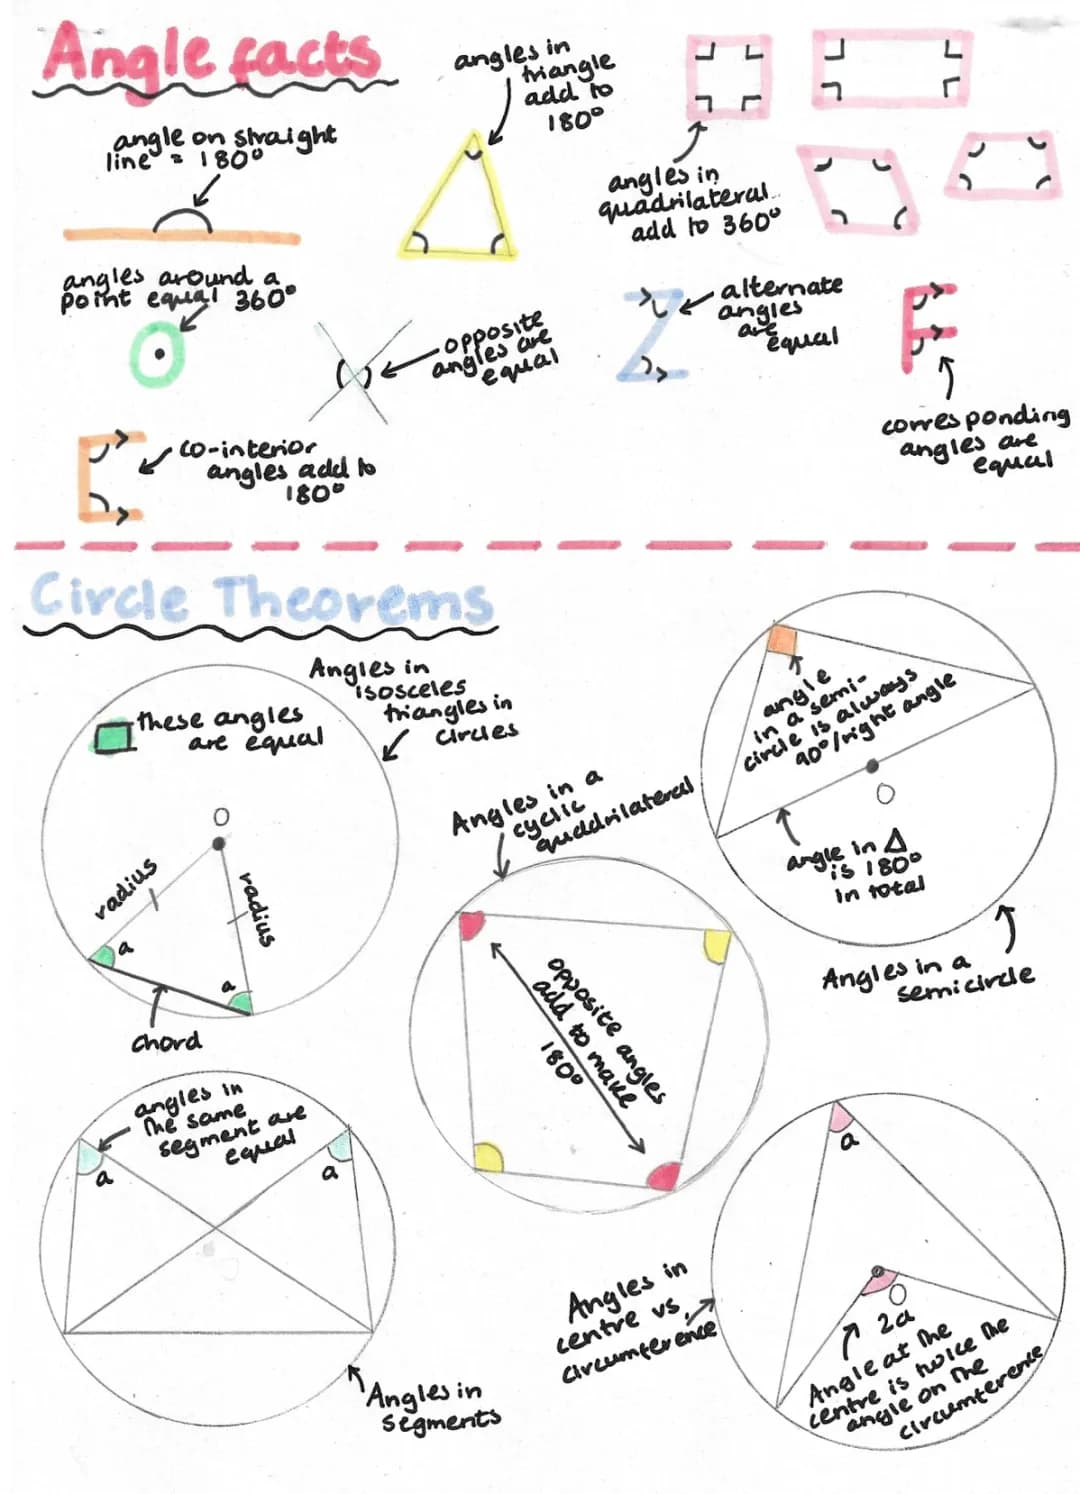 Angle facts
angle on straight
line = 180°
angles in
triangle
add to
180°
angles in
quadrilateral
add to 360°
angles around a
point equal 360°
opposite
angles are
equal
alternate
angles
are
equal
corresponding
angles are
equal
co-interior
angles add to
180°
Circle Theorems
Angles in
isosceles
triangles in
circles
these angles
are equal
O
radius
radius
a
a
chord
Angles in a
cyclic
quadrilateral
opposite angles
add to make
180°
angle
in a semi-
circle is always
90°/right angle
O
angle in Δ
is 180°
in total
Angles in a
semicircle
angles in
the same
segment are
equal
a
a
Angles in
segments
a
O
2a
Angle at the
centre is twice the
angle on the
circumference
Angles in
centre vs
circumference